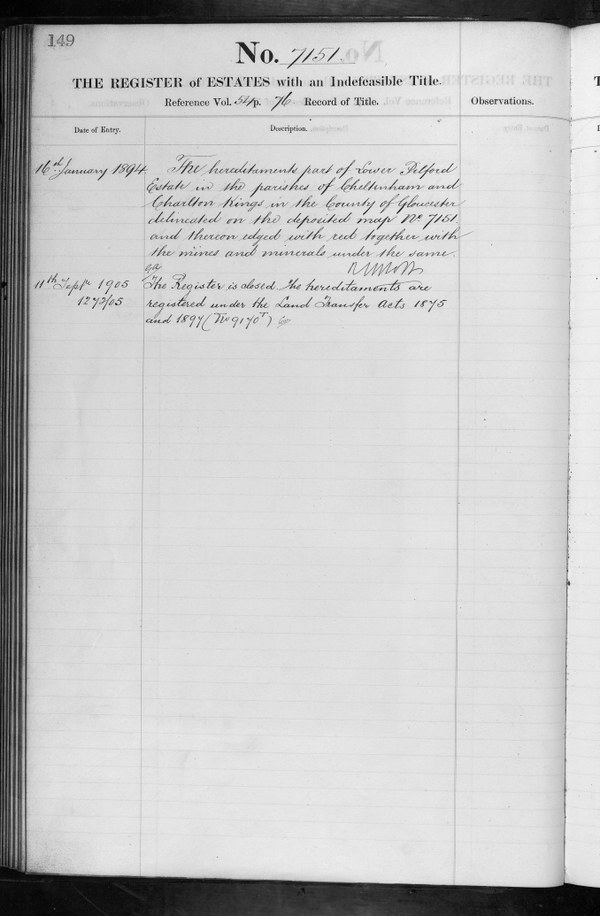 149
No. 7151.
THE REGISTER of ESTATES with an Indefeasible Title.
Reference Vol. 54 p. 76 Record of Title.
Observations.
Date of Entry.
Description.
16th January 1894
The hereditaments part of Lower Pilford
Estate in the parishes of Cheltenham and
Charlton Kings in the County of Gloucester
delineated on the deposited map No 7151
and thereon edged with red together with
the mines and minerals under the same.
11th Septr 1905
1272/05
The Register is closed the hereditaments are
registered under the Land Transfer Acts 1875
and 1897 (No 9170T)